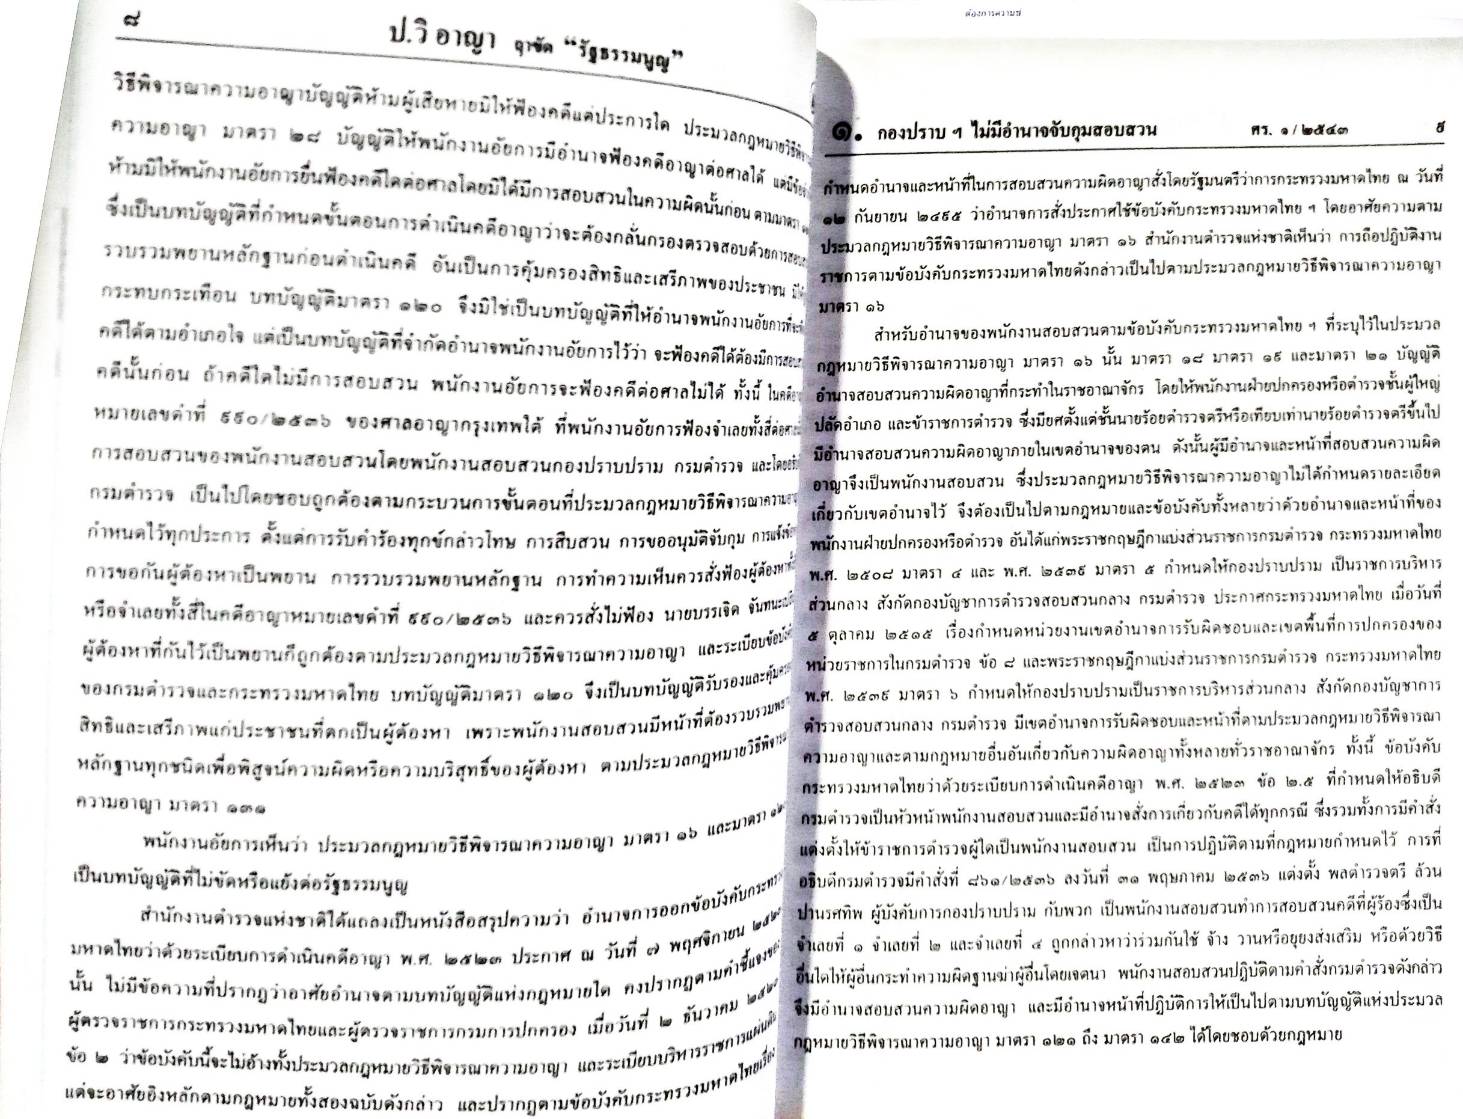 ๘
ป.วิ อาญา ฤาขัด “รัฐธรรมนูญ”
วิธีพิจารณาความอาญาบัญญัติห้ามผู้เสียหายมิให้ฟ้องคดีแต่ประการใด ประมวลกฎหมายวิธีพิ
ความอาญา มาตรา ๒๘ บัญญัติให้พนักงานอัยการมีอำนาจฟ้องคดีอาญาต่อศาลได้ แต่มี
ห้ามมิให้พนักงานอัยการยื่นฟ้องคดีใดต่อศาลโดยมิได้มีการสอบสวนในความผิดนั้นก่อน ตามมาตรา
ซึ่งเป็นบทบัญญัติที่กำหนดขั้นตอนการดำเนินคดีอาญาว่าจะต้องกลั่นกรองตรวจสอบด้วยการสอบ
รวบรวมพยานหลักฐานก่อนดำเนินคดี อันเป็นการคุ้มครองสิทธิและเสรีภาพของประชาชน
กระทบกระเทือน บทบัญญัติมาตรา ๑๒๐ จึงมิใช่เป็นบทบัญญัติที่ให้อำนาจพนักงานอัยการที่จะ
คดีได้ตามอำเภอใจ แต่เป็นบทบัญญัติที่จำกัดอำนาจพนักงานอัยการไว้ว่า จะฟ้องคดีได้ต้องมีการสอบ
คดีนั้นก่อน ถ้าคดีใดไม่มีการสอบสวน พนักงานอัยการจะฟ้องคดีต่อศาลไม่ได้ ทั้งนี้ ในคดี
หมายเลขดำที่ ๙๙๐/๒๕๓๖ ของศาลอาญากรุงเทพใต้ ที่พนักงานอัยการฟ้องจำเลยทั้งสี่ต่อศาล
การสอบสวนของพนักงานสอบสวนโดยพนักงานสอบสวนกองปราบปราม กรมตำรวจ และโดย
กรมตำรวจ เป็นไปโดยชอบถูกต้องตามกระบวนการขั้นตอนที่ประมวลกฎหมายวิธีพิจารณาความอา
กำหนดไว้ทุกประการ ตั้งแต่การรับคำร้องทุกข์กล่าวโทษ การสืบสวน การขออนุมัติจับกุม การแจ้ง
การขอกันผู้ต้องหาเป็นพยาน การรวบรวมพยานหลักฐาน การทำความเห็นควรสั่งฟ้องผู้ต้องหา
หรือจำเลยทั้งสี่ในคดีอาญาหมายเลขดำที่ ๙๙๐/๒๕๓๖ และควรสั่งไม่ฟ้อง นายบรรเจิด
ผู้ต้องหาที่กันไว้เป็นพยานก็ถูกต้องตามประมวลกฎหมายวิธีพิจารณาความอาญา และระเบียบข้อบังคับ
ของกรมตำรวจและกระทรวงมหาดไทย บทบัญญัติมาตรา ๑๒๐ จึงเป็นบทบัญญัติรับรองและคุ้มคร
สิทธิและเสรีภาพแก่ประชาชนที่ตกเป็นผู้ต้องหา เพราะพนักงานสอบสวนมีหน้าที่ต้องรวบรวมพยา
หลักฐานทุกชนิดเพื่อพิสูจน์ความผิดหรือความบริสุทธิ์ของผู้ต้องหา ตามประมวลกฎหมายวิธีพิจารณ
ความอาญา มาตรา ๑๓๑
พนักงานอัยการเห็นว่า ประมวลกฎหมายวิธีพิจารณาความอาญา มาตรา ๑๖ และมาตรา
เป็นบทบัญญัติที่ไม่ขัดหรือแย้งต่อรัฐธรรมนูญ
สำนักงานตำรวจแห่งชาติได้แถลงเป็นหนังสือสรุปความว่า อำนาจการออกข้อบังคับกระทรวง
มหาดไทยว่าด้วยระเบียบการดำเนินคดีอาญา พ.ศ. ๒๕๒๓ ประกาศ ณ วันที่ ๗ พฤศจิกายน ๒๕๒๓
นั้น ไม่มีข้อความที่ปรากฏว่าอาศัยอำนาจตามบทบัญญัติแห่งกฎหมายใด คงปรากฏตามคำชี้แจงของ
ผู้ตรวจราชการกระทรวงมหาดไทยและผู้ตรวจราชการกรมการปกครอง เมื่อวันที่ ๒ ธันวาคม ๒๕๒๓
ข้อ ๒ ว่าข้อบังคับนี้จะไม่อ้างทั้งประมวลกฎหมายวิธีพิจารณาความอาญา และระเบียบบริหารราชการแผ่นดิน
แต่จะอาศัยอิงหลักตามกฎหมายทั้งสองฉบับดังกล่าว และปรากฏตามข้อบังคับกระทรวงมหาดไทยเรื่อง
ต้องการความช
๑. กองปราบ ฯ ไม่มีอำนาจจับกุมสอบสวน ศร. ๑/๒๕๔๓ ๙
กำหนดอำนาจและหน้าที่ในการสอบสวนความผิดอาญาสั่งโดยรัฐมนตรีว่าการกระทรวงมหาดไทย ณ วันที่
๑๒ กันยายน ๒๔๙๕ ว่าอำนาจการสั่งประกาศใช้ข้อบังคับกระทรวงมหาดไทย ฯ โดยอาศัยความตาม
ประมวลกฎหมายวิธีพิจารณาความอาญา มาตรา ๑๖ สำนักงานตำรวจแห่งชาติเห็นว่า การถือปฏิบัติงาน
ราชการตามข้อบังคับกระทรวงมหาดไทยดังกล่าวเป็นไปตามประมวลกฎหมายวิธีพิจารณาความอาญา
มาตรา ๑๖
สำหรับอำนาจของพนักงานสอบสวนตามข้อบังคับกระทรวงมหาดไทย ฯ ที่ระบุไว้ในประมวล
กฎหมายวิธีพิจารณาความอาญา มาตรา ๑๖ นั้น มาตรา ๑๘ มาตรา ๑๙ และมาตรา ๒๑ บัญญัติ
อำนาจสอบสวนความผิดอาญาที่กระทำในราชอาณาจักร โดยให้พนักงานฝ่ายปกครองหรือตำรวจชั้นผู้ใหญ่
ปลัดอำเภอ และข้าราชการตำรวจ ซึ่งมียศตั้งแต่ชั้นนายร้อยตำรวจตรีหรือเทียบเท่านายร้อยตำรวจตรีขึ้นไป
มีอำนาจสอบสวนความผิดอาญาภายในเขตอำนาจของตน ดังนั้นผู้มีอำนาจและหน้าที่สอบสวนความผิด
อาญาจึงเป็นพนักงานสอบสวน ซึ่งประมวลกฎหมายวิธีพิจารณาความอาญาไม่ได้กำหนดรายละเอียด
เกี่ยวกับเขตอำนาจไว้ จึงต้องเป็นไปตามกฎหมายและข้อบังคับทั้งหลายว่าด้วยอำนาจและหน้าที่ของ
พนักงานฝ่ายปกครองหรือตำรวจ อันได้แก่พระราชกฤษฎีกาแบ่งส่วนราชการกรมตำรวจ กระทรวงมหาดไทย
พ.ศ. ๒๕๐๘ มาตรา ๔ และ พ.ศ. ๒๕๓๙ มาตรา ๕ กำหนดให้กองปราบปราม เป็นราชการบริหาร
ส่วนกลาง สังกัดกองบัญชาการตำรวจสอบสวนกลาง กรมตำรวจ ประกาศกระทรวงมหาดไทย เมื่อวันที่
๕ ตุลาคม ๒๕๑๕ เรื่องกำหนดหน่วยงานเขตอำนาจการรับผิดชอบและเขตพื้นที่การปกครองของ
หน่วยราชการในกรมตำรวจ ข้อ ๘ และพระราชกฤษฎีกาแบ่งส่วนราชการกรมตำรวจ กระทรวงมหาดไทย
พ.ศ. ๒๕๓๙ มาตรา ๖ กำหนดให้กองปราบปรามเป็นราชการบริหารส่วนกลาง สังกัดกองบัญชาการ
ตำรวจสอบสวนกลาง กรมตำรวจ มีเขตอำนาจการรับผิดชอบและหน้าที่ตามประมวลกฎหมายวิธีพิจารณา
ความอาญาและตามกฎหมายอื่นอันเกี่ยวกับความผิดอาญาทั้งหลายทั่วราชอาณาจักร ทั้งนี้ ข้อบังคับ
กระทรวงมหาดไทยว่าด้วยระเบียบการดำเนินคดีอาญา พ.ศ. ๒๕๒๓ ข้อ ๒.๕ ที่กำหนดให้อธิบดี
กรมตำรวจเป็นหัวหน้าพนักงานสอบสวนและมีอำนาจสั่งการเกี่ยวกับคดีได้ทุกกรณี ซึ่งรวมทั้งการมีคำสั่ง
แต่งตั้งให้ข้าราชการตำรวจผู้ใดเป็นพนักงานสอบสวน เป็นการปฏิบัติตามที่กฎหมายกำหนดไว้ การที่
อธิบดีกรมตำรวจมีคำสั่งที่ ๘๖๑/๒๕๓๖ ลงวันที่ ๓๑ พฤษภาคม ๒๕๓๖ แต่งตั้ง พลตำรวจตรี ล้วน
ปานรศทิพ ผู้บังคับการกองปราบปราม กับพวก เป็นพนักงานสอบสวนทำการสอบสวนคดีที่ผู้ร้องซึ่งเป็น
จำเลยที่ ๑ จำเลยที่ ๒ และจำเลยที่ ๔ ถูกกล่าวหาว่าร่วมกันใช้ จ้าง วานหรือยุยงส่งเสริม หรือด้วยวิธี
อื่นใดให้ผู้อื่นกระทำความผิดฐานฆ่าผู้อื่นโดยเจตนา พนักงานสอบสวนปฏิบัติตามคำสั่งกรมตำรวจดังกล่าว
จึงมีอำนาจสอบสวนความผิดอาญา และมีอำนาจหน้าที่ปฏิบัติการให้เป็นไปตามบทบัญญัติแห่งประมวล
กฎหมายวิธีพิจารณาความอาญา มาตรา ๑๒๑ ถึง มาตรา ๑๔๒ ได้โดยชอบด้วยกฎหมาย